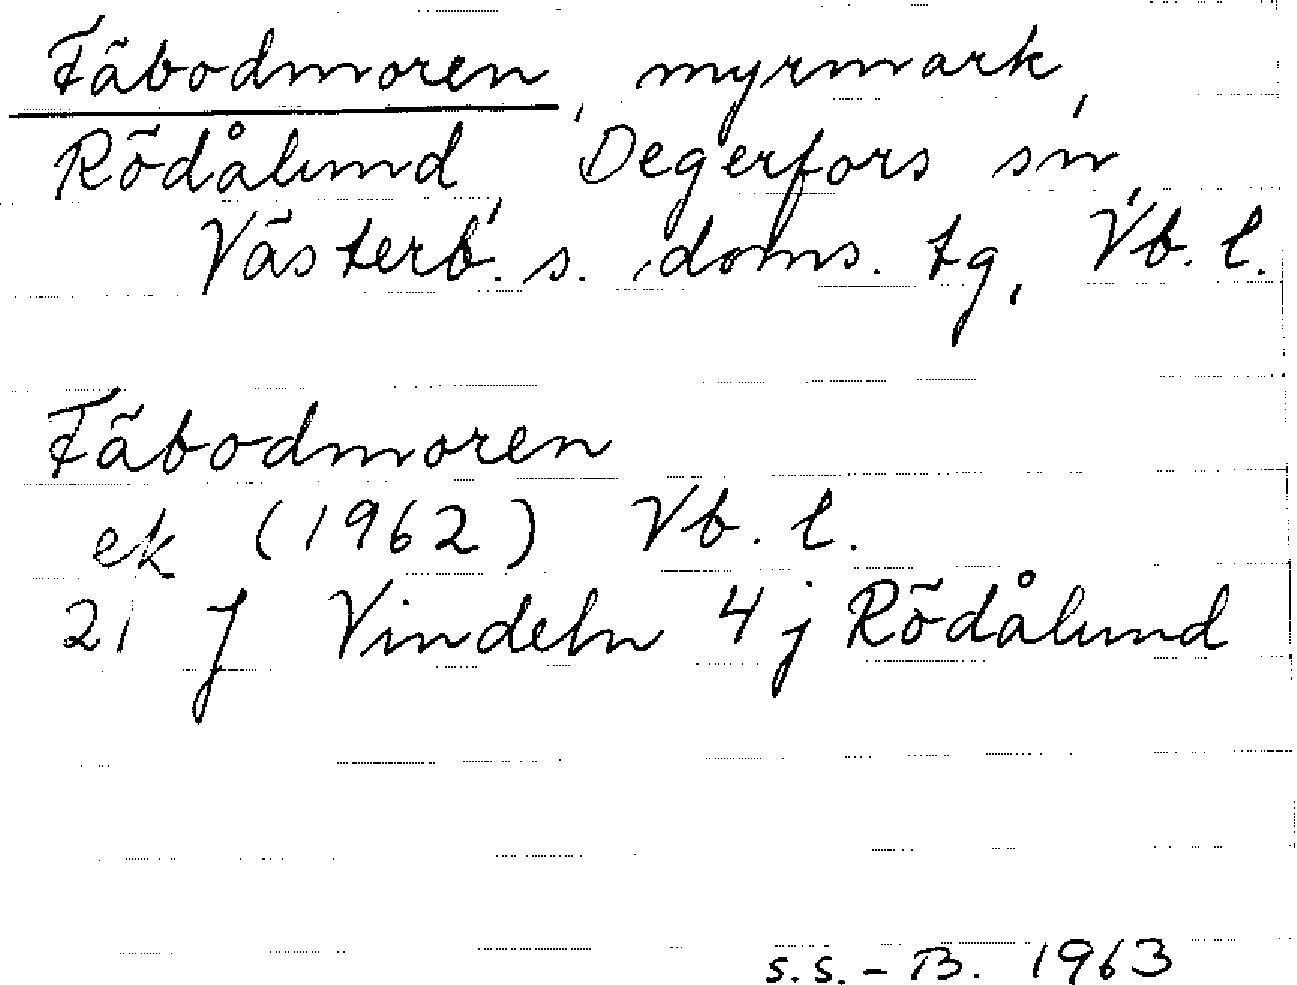 Fäbodmoren, myrmark,
Rödålund, Degerfors sn,
Västerb. s. doms. tg, Vb. l.
Fäbodmoren
ek (1962) Vb. l.
21 J Vindeln 4 j Rödålund
S.S.-B. 1963